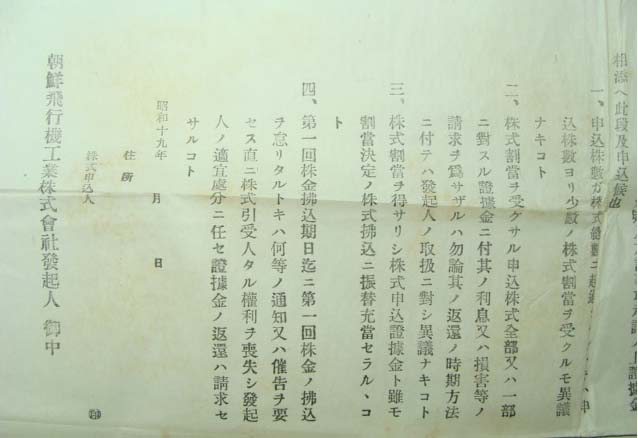 相添へ此段及申込候也
一、申込株數ガ株式總數ニ超過 申
込株數ヨリ少數ノ株式割當ヲ受クルモ異議
ナキコト
二、株式割當ヲ受ケサル申込株式全部又ハ一部
ニ對スル證據金ニ付其ノ利息又ハ損害等ノ
請求ヲ爲サザルハ勿論其ノ返還ノ時期方法
ニ付テハ發起人ノ取扱ニ對シ異議ナキコト
三、株式割當ヲ得サリシ株式申込證據金ト雖モ
割當決定ノ株式拂込ニ振替充當セラルヽコ
ト
四、第一回株金拂込期日迄ニ第一回株金ノ拂込
ヲ怠リタルトキハ何等ノ通知又ハ催告ヲ要
セス直ニ株式引受人タル權利ヲ喪失シ發起
人ノ適宜處分ニ任セ證據金ノ返還ハ請求セ
サルコト
昭和十九年 月 日
住所
株式申込人 ㊞
朝鮮飛行機工業株式會社發起人 御中